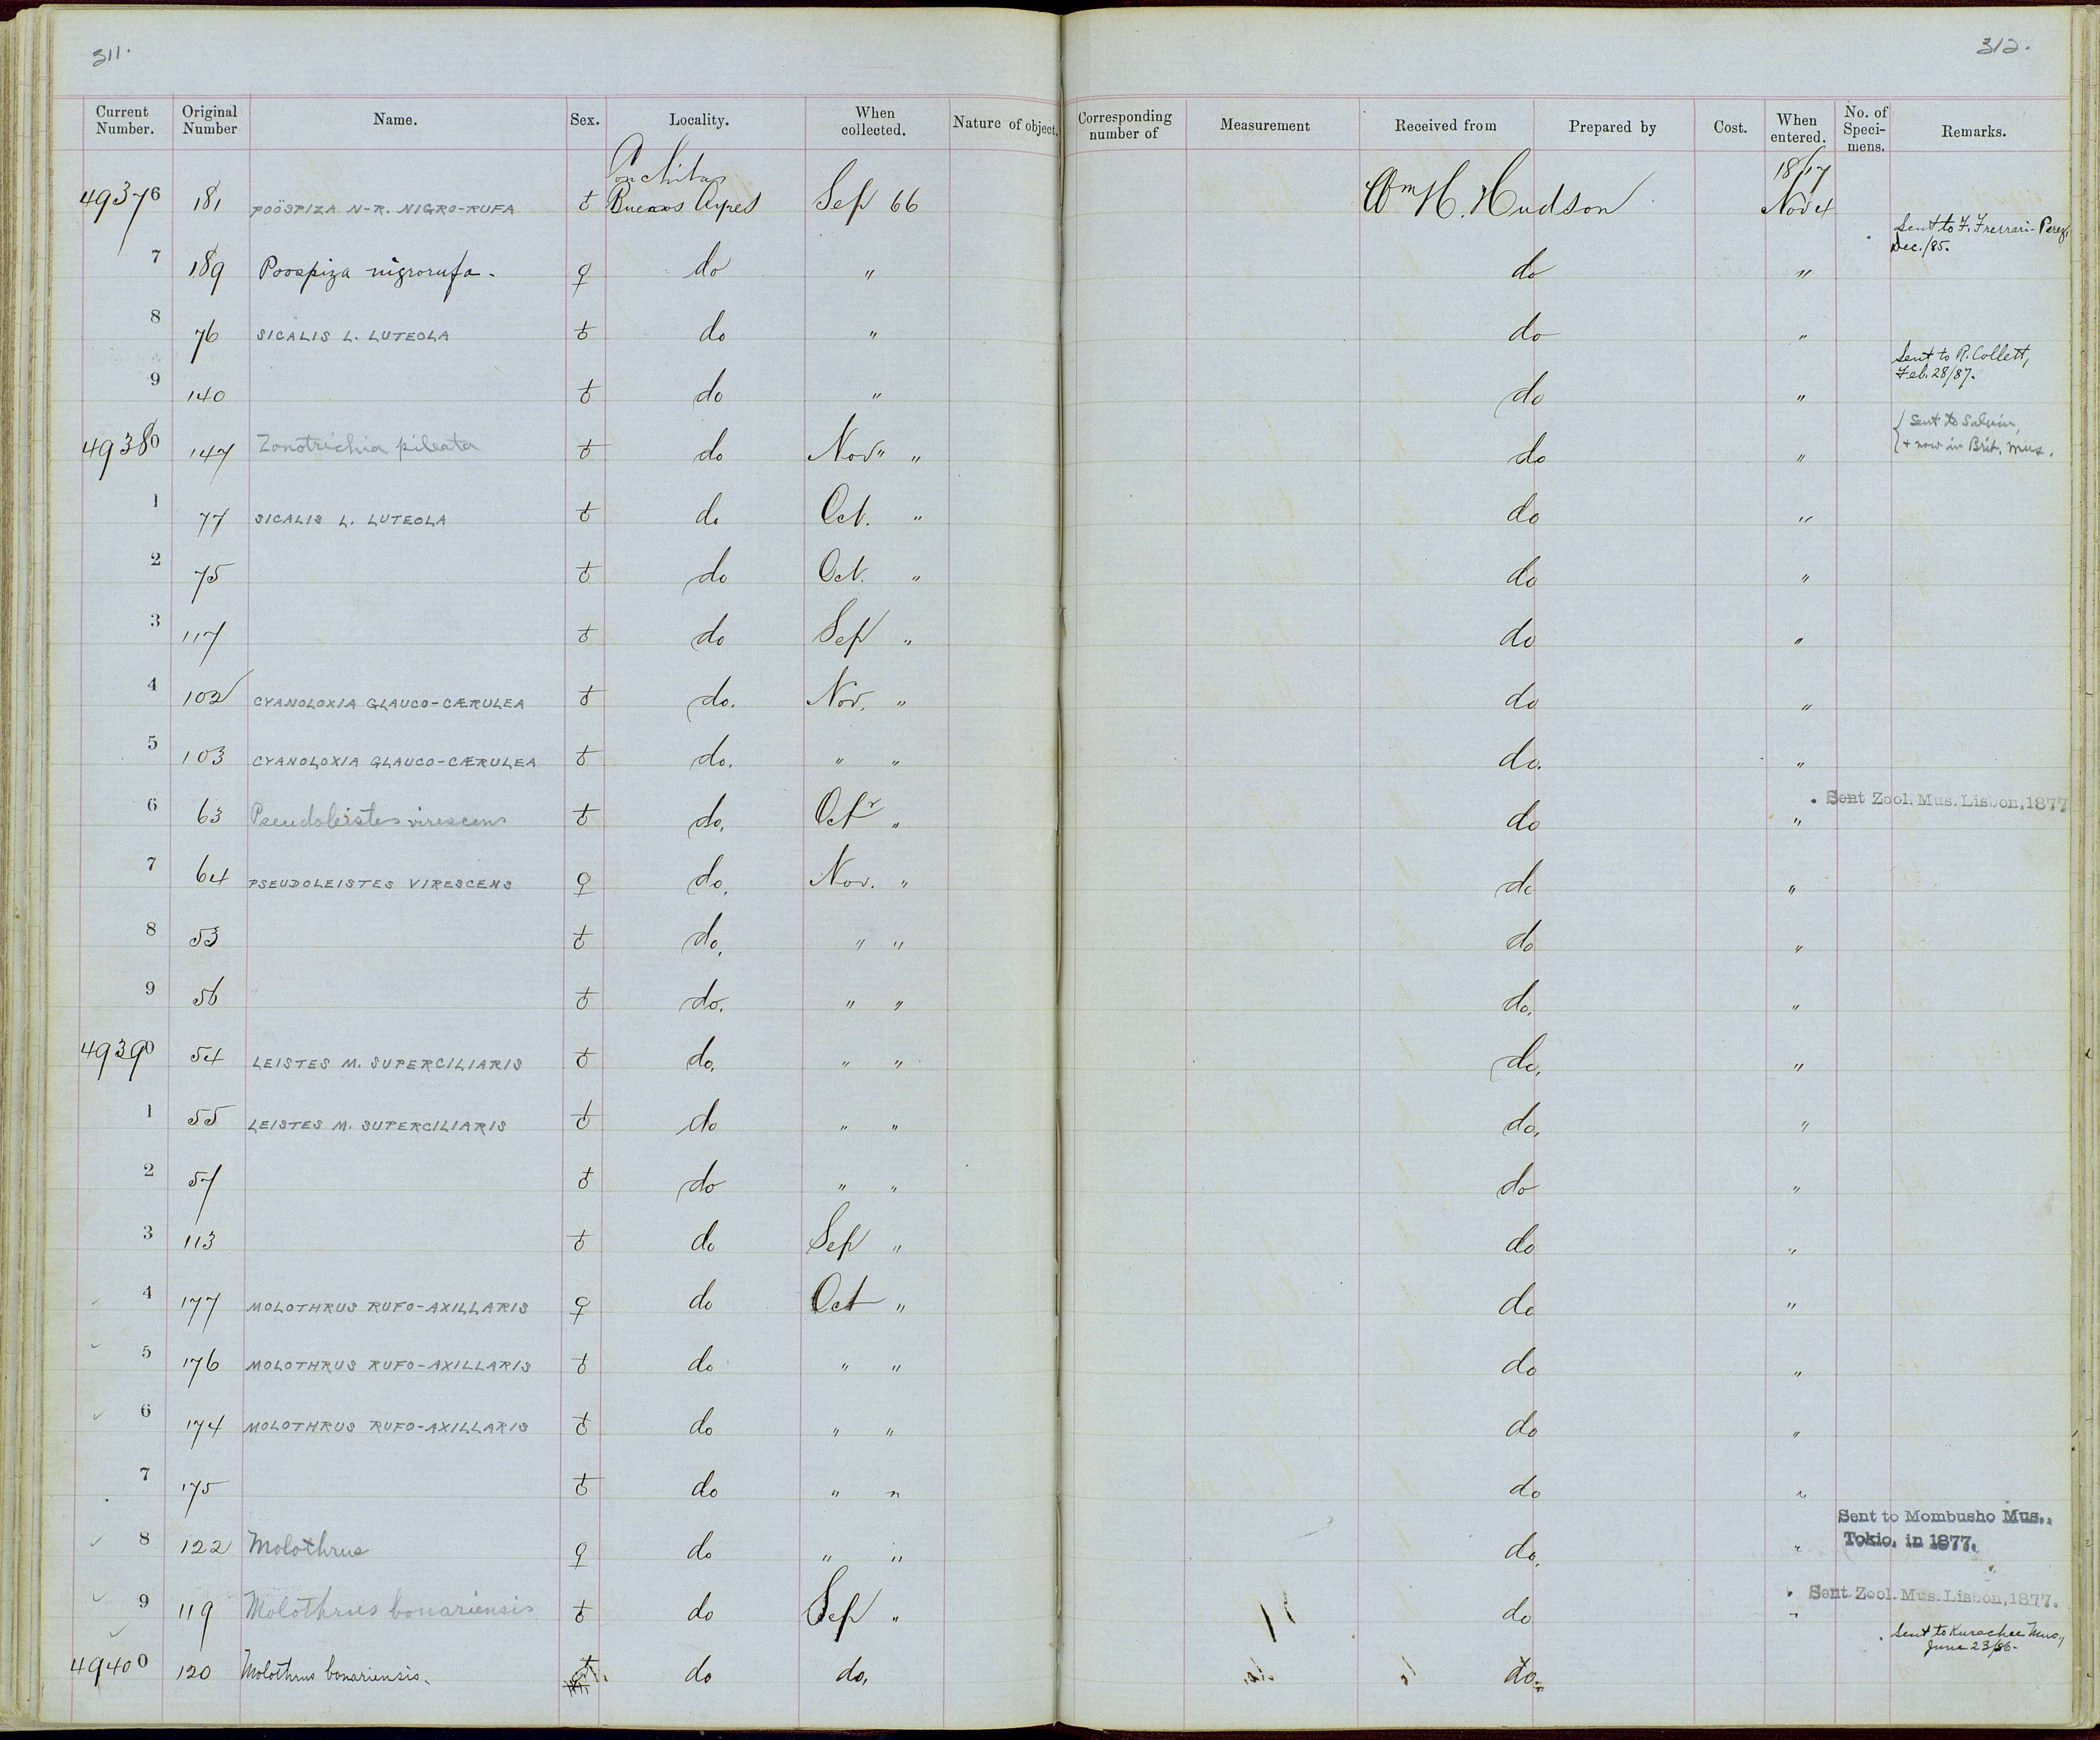 311.
312.
Current Number. Original Number Name. Sex. Locality. When collected. Nature of object. Corresponding number of Measurement Received from Prepared by Cost. When entered. No. of Speci-mens. Remarks.
Conchitas 1867
49376 181 POÖSPIZA N-R. NIGRO-RUFA ♂ Buenos Ayres Sep 66 Wm H. Hudson Nov 4
Sent to F. Frerrari-Perez,
Dec./85.
7 189 Poospiza nigrorufa. ♀ do " do "
8 76 SICALIS L. LUTEOLA ♂ do " do "
Sent to R. Collett,
Feb. 28/87.
9 140 ♂ do " do "
Sent to Salvin,
+ now in Brit. Mus.
49380 147 Zonotrichia pileata ♂ do Nov " " do "
1 77 SICALIS L. LUTEOLA ♂ do Oct. " do "
2 75 ♂ do Oct. " do "
3 117 ♂ do Sep " do "
4 102 CYANOLOXIA GLAUCO-CÆRULEA ♂ do. Nov. " do "
5 103 CYANOLOXIA GLAUCO-CÆRULEA ♂ do. " " do. "
Sent Zool. Mus. Lisbon, 1877
6 63 Pseudoleistes virescens ♂ do. Octr " do "
7 64 PSEUDOLEISTES VIRESCENS ♀ do. Nov. " do "
8 53 ♂ do. " " do "
9 56 ♂ do. " " do. "
49390 54 LEISTES M. SUPERCILIARIS ♂ do. " " do. "
1 55 LEISTES M. SUPERCILIARIS ♂ do " " do. "
2 57 ♂ do " " do "
3 113 ♂ do Sep " do "
4 177 MOLOTHRUS RUFO-AXILLARIS ♀ do Oct " do "
5 176 MOLOTHRUS RUFO-AXILLARIS ♂ do " " do "
6 174 MOLOTHRUS RUFO-AXILLARIS ♂ do " " do "
7 175 ♂ do " " do "
Sent to Mombusho Mus.,
Tokio, in 1877.
8 122 Molothrus ♀ do " " do. "
Sent Zool. Mus. Lisbon, 1877.
9 119 Molothrus bonariensis ♂ do Sep " do "
Sent to Kurachee Mus.,
June 23/86.
49400 120 Molothrus bonariensis. do do. do. "